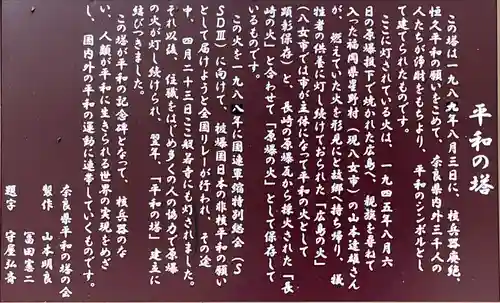 平和の塔
この塔は一九八九年八月三日に、核兵器廃絶、
恒久平和の願いをこめて、奈良県内外三千人の
人たちが浄財をもちより、平和のシンボルとし
て建てられたものです。
ここに灯されている火は、一九四五年八月六
日の原爆投下で焼かれた広島へ、親族を尋ねて
入った福岡県星野村（現八女市）の山本達雄さん
が、燃えていた火を形見にと故郷へ持ち帰り、犠
牲者の供養に灯し続けておられた「広島の火」
（八女市では市が主体になって平和の火として
顕彰保存）と、長崎の原爆瓦から採火された「長
崎の火」と合わせて「原爆の火」として保存して
いるものです。
この火を一九八八年に国連軍縮特別総会（Ｓ
ＳＤⅢ）に向けて、被爆国日本の非核平和の願い
として届けようと全国リレーが行われ、その途
中、四月二十三日ここ般若寺にも灯されました。
それ以後、住職をはじめ多くの人の協力で原爆
の火が灯し続けられ、翌年、「平和の塔」建立に
結びつきました。
この塔が平和の記念碑となって、核兵器のな
い、人類が平和に生きられる世界の実現をめざ
し、国内外の平和の運動に連帯していくものです。
奈良県平和の塔の会
製作 山本明良
冨田憲二
題字 守屋弘斎